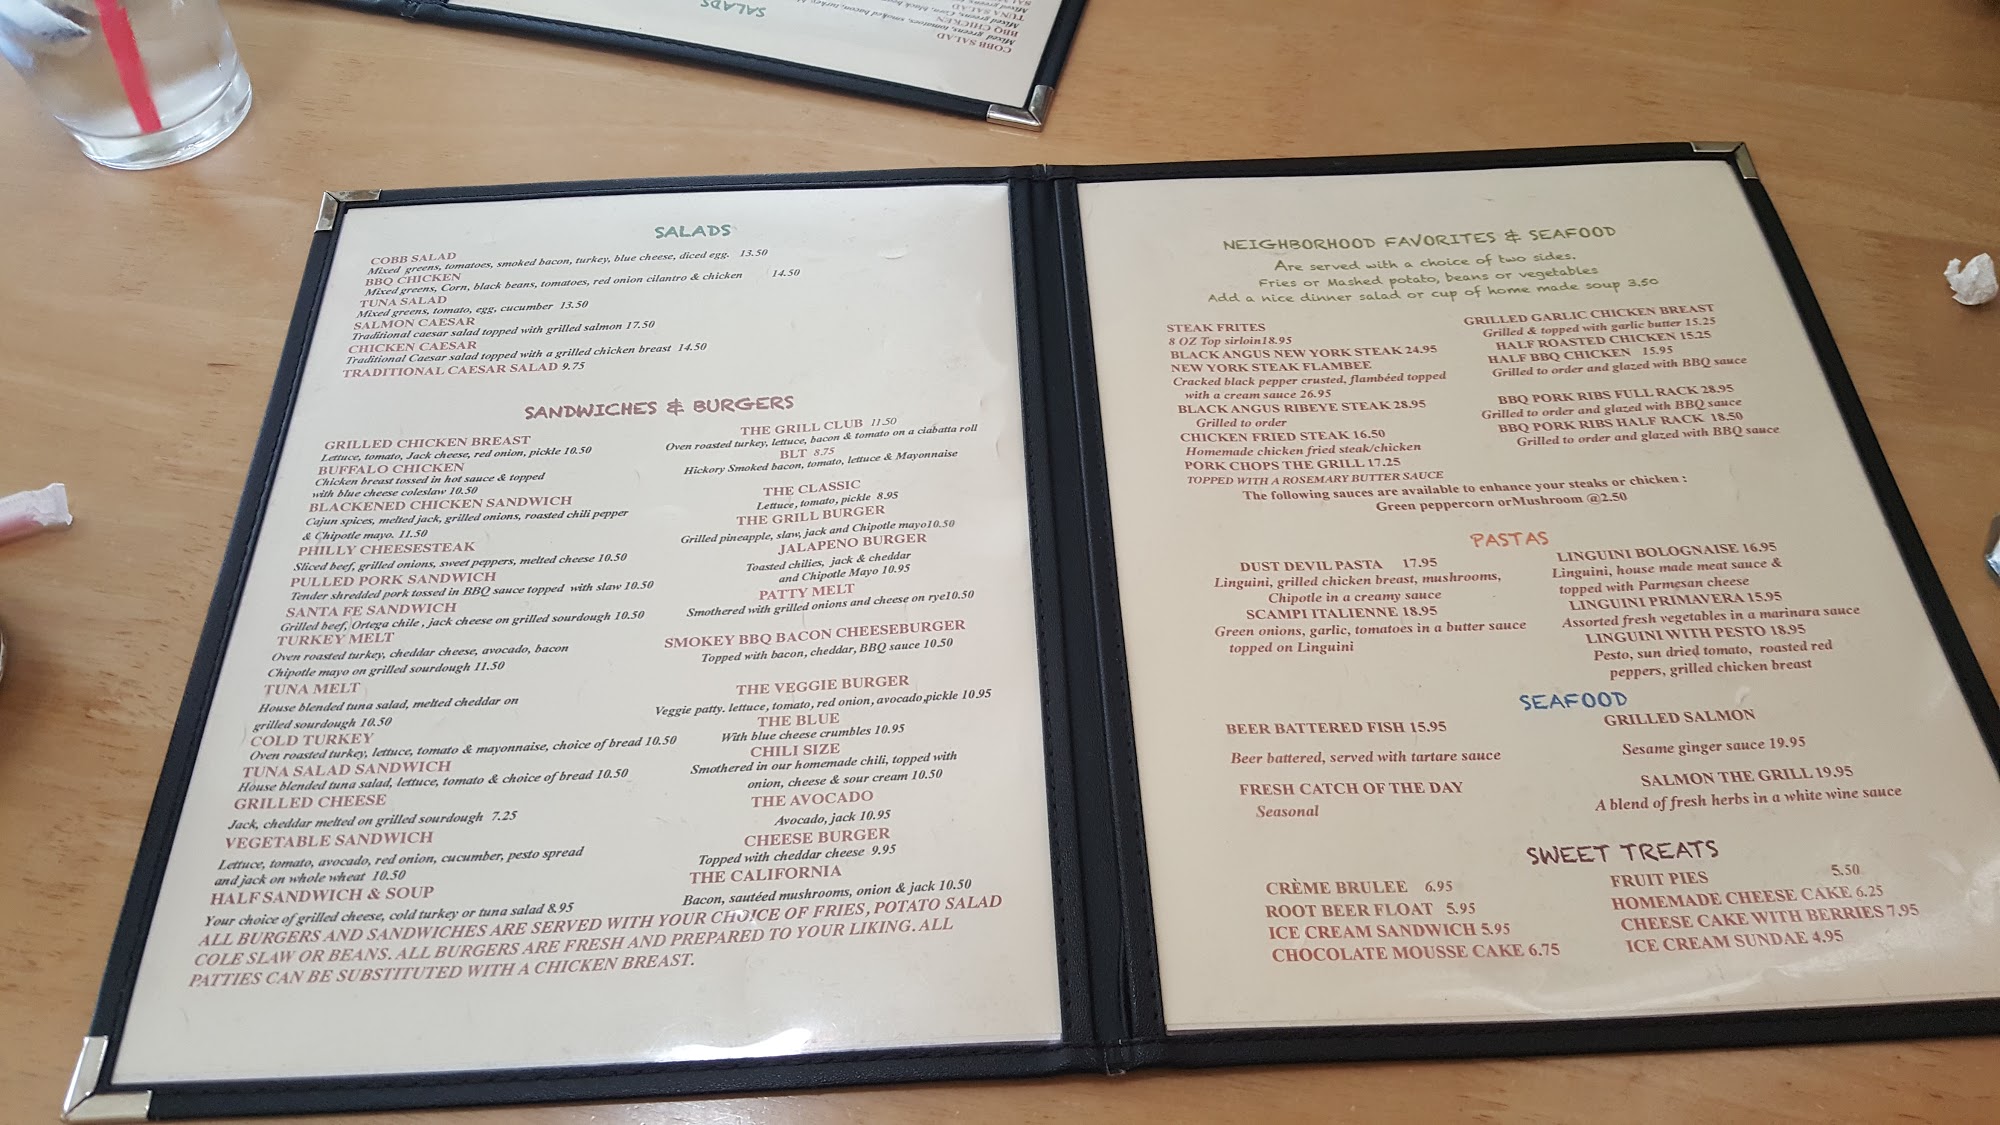 SALADS
COBB SALAD
Mixed greens, tomatoes, smoked bacon, turkey, blue cheese, diced egg. 13.50
BBQ CHICKEN
Mixed greens, Corn, black beans, tomatoes, red onion cilantro & chicken 14.50
TUNA SALAD
Mixed greens, tomato, egg, cucumber 13.50
SALMON CAESAR
Traditional caesar salad topped with grilled salmon 17.50
CHICKEN CAESAR
Traditional Caesar salad topped with a grilled chicken breast 14.50
TRADITIONAL CAESAR SALAD 9.75
SANDWICHES & BURGERS
GRILLED CHICKEN BREAST
Lettuce, tomato, Jack cheese, red onion, pickle 10.50
BUFFALO CHICKEN
Chicken breast tossed in hot sauce & topped
with blue cheese coleslaw 10.50
BLACKENED CHICKEN SANDWICH
Cajun spices, melted jack, grilled onions, roasted chili pepper
& Chipotle mayo. 11.50
PHILLY CHEESESTEAK
Sliced beef, grilled onions, sweet peppers, melted cheese 10.50
PULLED PORK SANDWICH
Tender shredded pork tossed in BBQ sauce topped with slaw 10.50
SANTA FE SANDWICH
Grilled beef, Ortega chile , jack cheese on grilled sourdough 10.50
TURKEY MELT
Oven roasted turkey, cheddar cheese, avocado, bacon
Chipotle mayo on grilled sourdough 11.50
TUNA MELT
House blended tuna salad, melted cheddar on
grilled sourdough 10.50
COLD TURKEY
Oven roasted turkey, lettuce, tomato & mayonnaise, choice of bread 10.50
TUNA SALAD SANDWICH
House blended tuna salad, lettuce, tomato & choice of bread 10.50
GRILLED CHEESE
Jack, cheddar melted on grilled sourdough 7.25
VEGETABLE SANDWICH
Lettuce, tomato, avocado, red onion, cucumber, pesto spread
and jack on whole wheat 10.50
HALF SANDWICH & SOUP
Your choice of grilled cheese, cold turkey or tuna salad 8.95
THE GRILL CLUB 11.50
Oven roasted turkey, lettuce, bacon & tomato on a ciabatta roll
BLT 8.75
Hickory Smoked bacon, tomato, lettuce & Mayonnaise
THE CLASSIC
Lettuce, tomato, pickle 8.95
THE GRILL BURGER
Grilled pineapple, slaw, jack and Chipotle mayo10.50
JALAPENO BURGER
Toasted chilies, jack & cheddar
and Chipotle Mayo 10.95
PATTY MELT
Smothered with grilled onions and cheese on rye10.50
SMOKEY BBQ BACON CHEESEBURGER
Topped with bacon, cheddar, BBQ sauce 10.50
THE VEGGIE BURGER
Veggie patty. lettuce, tomato, red onion, avocado,pickle 10.95
THE BLUE
With blue cheese crumbles 10.95
CHILI SIZE
Smothered in our homemade chili, topped with
onion, cheese & sour cream 10.50
THE AVOCADO
Avocado, jack 10.95
CHEESE BURGER
Topped with cheddar cheese 9.95
THE CALIFORNIA
Bacon, sautéed mushrooms, onion & jack 10.50
ALL BURGERS AND SANDWICHES ARE SERVED WITH YOUR CHOICE OF FRIES, POTATO SALAD
COLE SLAW OR BEANS. ALL BURGERS ARE FRESH AND PREPARED TO YOUR LIKING. ALL
PATTIES CAN BE SUBSTITUTED WITH A CHICKEN BREAST.
NEIGHBORHOOD FAVORITES & SEAFOOD
Are served with a choice of two sides.
Fries or Mashed potato, beans or vegetables
Add a nice dinner salad or cup of home made soup 3.50
STEAK FRITES
8 OZ Top sirloin18.95
BLACK ANGUS NEW YORK STEAK 24.95
NEW YORK STEAK FLAMBEE
Cracked black pepper crusted, flambéed topped
with a cream sauce 26.95
BLACK ANGUS RIBEYE STEAK 28.95
Grilled to order
CHICKEN FRIED STEAK 16.50
Homemade chicken fried steak/chicken
PORK CHOPS THE GRILL 17.25
TOPPED WITH A ROSEMARY BUTTER SAUCE
GRILLED GARLIC CHICKEN BREAST
Grilled & topped with garlic butter 15.25
HALF ROASTED CHICKEN 15.25
HALF BBQ CHICKEN 15.95
Grilled to order and glazed with BBQ sauce
BBQ PORK RIBS FULL RACK 28.95
Grilled to order and glazed with BBQ sauce
BBQ PORK RIBS HALF RACK 18.50
Grilled to order and glazed with BBQ sauce
The following sauces are available to enhance your steaks or chicken :
Green peppercorn orMushroom @2.50
PASTAS
DUST DEVIL PASTA 17.95
Linguini, grilled chicken breast, mushrooms,
Chipotle in a creamy sauce
SCAMPI ITALIENNE 18.95
Green onions, garlic, tomatoes in a butter sauce
topped on Linguini
LINGUINI BOLOGNAISE 16.95
Linguini, house made meat sauce &
topped with Parmesan cheese
LINGUINI PRIMAVERA 15.95
Assorted fresh vegetables in a marinara sauce
LINGUINI WITH PESTO 18.95
Pesto, sun dried tomato, roasted red
peppers, grilled chicken breast
SEAFOOD
BEER BATTERED FISH 15.95
Beer battered, served with tartare sauce
FRESH CATCH OF THE DAY
Seasonal
GRILLED SALMON
Sesame ginger sauce 19.95
SALMON THE GRILL 19.95
A blend of fresh herbs in a white wine sauce
SWEET TREATS
CRÈME BRULEE 6.95
ROOT BEER FLOAT 5.95
ICE CREAM SANDWICH 5.95
CHOCOLATE MOUSSE CAKE 6.75
FRUIT PIES 5.50
HOMEMADE CHEESE CAKE 6.25
CHEESE CAKE WITH BERRIES 7.95
ICE CREAM SUNDAE 4.95
SALADS
COBB SALAD
Mixed greens, tomatoes, smoked bacon, turkey,
BBQ CHICKEN
Mixed greens, Corn, black
TUNA SALAD
Mixed greens